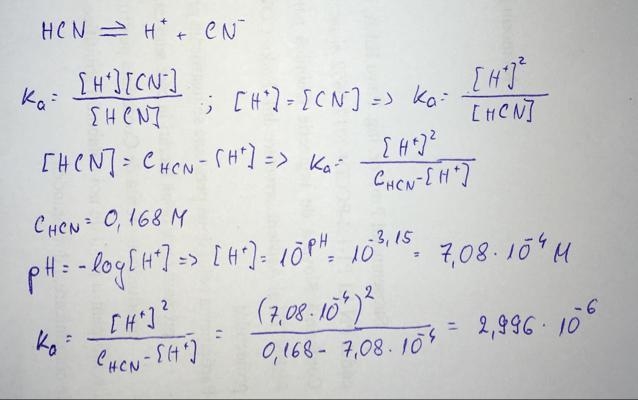 HCN ⇌ H⁺ + CN⁻
Ka = [H⁺][CN⁻] / [HCN] ; [H⁺] = [CN⁻] => Ka = [H⁺]² / [HCN]
[HCN] = C_HCN - [H⁺] => Ka = [H⁺]² / C_HCN - [H⁺]
C_HCN = 0,168 M
pH = -log[H⁺] => [H⁺] = 10^-pH = 10^-3,15 = 7,08 · 10⁻⁴ M
Ka = [H⁺]² / C_HCN - [H⁺] = (7,08 · 10⁻⁴)² / 0,168 - 7,08 · 10⁻⁴ = 2,996 · 10⁻⁶